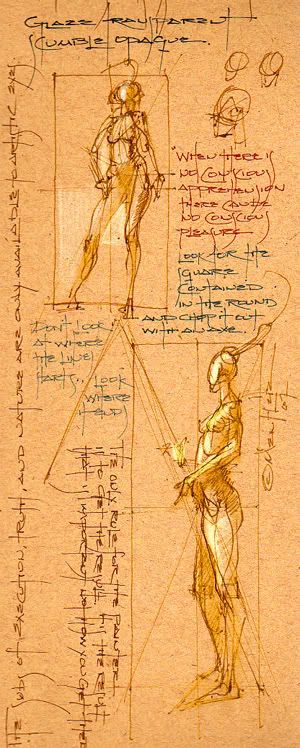 GLAZE TRANSPARENT
SCUMBLE OPAQUE.
"WHEN THERE IS
NO CONSCIOUS
APPREHENSION
THERE CAN BE
NO CONSCIOUS
PLEASURE
LOOK FOR THE
SQUARE
CONTAINED
IN THE ROUND
AND CHOP IT OUT
WITH AN AXE.
DON'T LOOK
AT WHERE
THE LINE
STARTS..
LOOK
WHERE
IT ENDS
THE ONLY RULE FOR THE PAINTER
IS TO GET THE RESULT. IT IS THE RESULT
THAT IS IMPORTANT NOT HOW YOU GET THERE
THE SUNS OF EXECUTION, TRUTH, AND NATURE ARE ONLY AVAILABLE PARTISTIC EYES